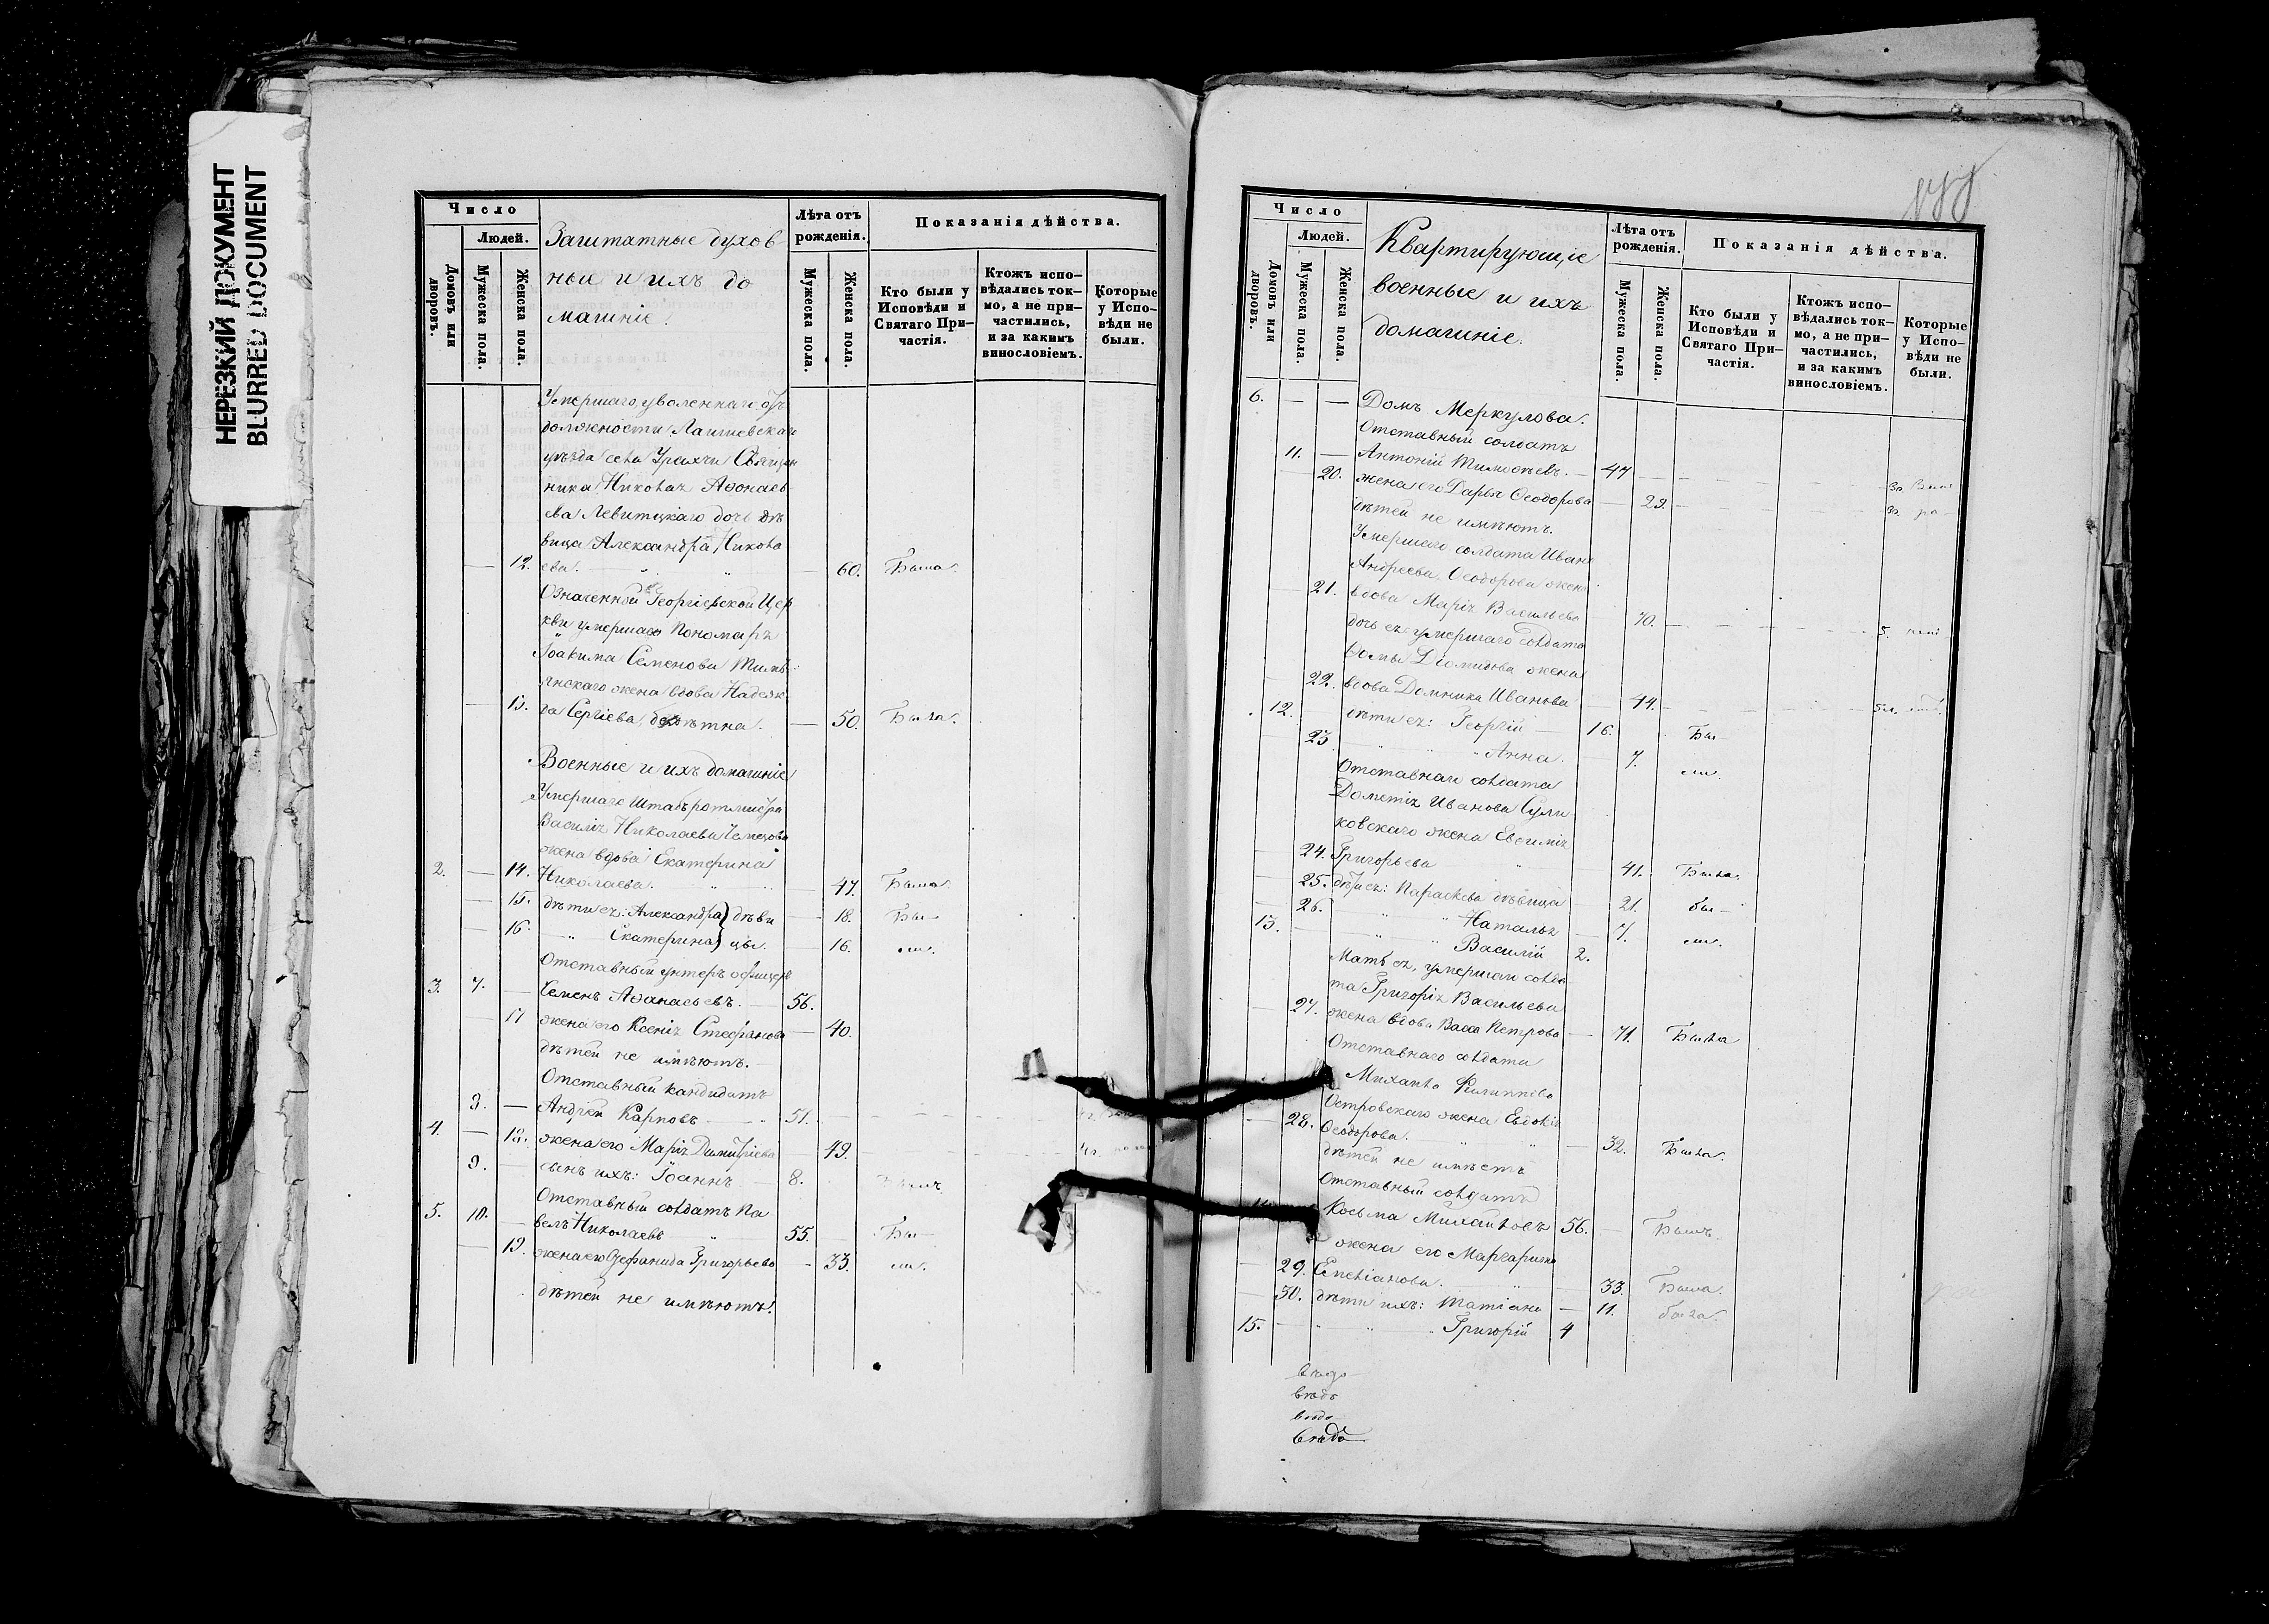 НЕРЕЗКИЙ ДОКУМЕНТ
BLURRED DOCUMENT
Число
Людей.
Домовъ или дворовъ.
Мужеска пола.
Женска пола.
Заштатные духов
ныи и ихъ до
машніе.
Лѣта отъ рожденія.
Мужеска пола.
Женска пола.
Показанія дѣйства.
Кто были у Исповѣди и Святаго Причастія.
Ктожъ исповѣдались токмо, а не причастились, и за какимъ винословіемъ.
Которые у Исповѣди не были.
Умершаго уволеннаго отъ
должности Лаишевскаго
уѣзда села Священ
ника Николая Аѳонасъ
ева Левитскаго дочь дѣ
вица Александра Никола
12. ева. 60. Была.
Означенной Георгіевской Цер
кви умершаго Пономаря
Іоакима Семенова
жена вдова Надеж
13. да Сергіева, бездѣтна. — 50. Была.
Военные и ихъ домашніе
Умершаго Штабъ ротмистра
Василія Николаева
жена вдова Екатерина
2. — 14. Николаева. — 47. Была.
— 15. дѣти ея: Александра } дѣви — 18. Бы—
— 16. Екатерина } цы. — 16. ли.
Отставный унтеръ офицеръ
3. 7. — Семенъ Аѳанасьевъ. — 56.
— 17 жена его Ксенія Стефанова — 40.
дѣтей не имѣютъ.
Отставный кандидатъ
8. — Андрей Карповъ — 51.
4. — 18. жена его Марія Димитріева — 49.
9. — сынъ ихъ: Іоаннъ — 8. Былъ.
Отставный солдатъ Па
5. 10. — велъ Николаевъ 55. Бы—
— 19. жена его Григорьева — 33. ли.
дѣтей не имѣютъ.
Число
Людей.
Домовъ или дворовъ.
Мужеска пола.
Женска пола.
Квартирующіе
военные и ихъ
домашніе.
Лѣта отъ рожденія.
Мужеска пола.
Женска пола.
Показанія дѣйства.
Кто были у Исповѣди и Святаго Причастія.
Ктожъ исповѣдались токмо, а не причастились, и за какимъ винословіемъ.
Которые у Исповѣди не были.
6. — — Домъ Меркулова.
Отставный солдатъ
11. — Антоній Тимоѳеевъ. — 47
— 20. жена его Дарья Ѳеодорова — 29.
дѣтей не имѣютъ.
Умершаго солдата Ивана
Андреева Ѳеодорова жена
— 21. вдова Марія Васильева 70.
дочь ея умершаго солдата
Ѳомы Діомидова жена
— 22. вдова Домника Иванова — 44.
12. дѣти ея: Георгій — 16. Бы—
— 23 Анна. — 7. ли.
Отставнаго солдата
Дометія Иванова Сули
ковскаго жена Евѳимія
— 24. Григорьева 41. Была.
— 25. дѣти ея: Параскева дѣвица 21. бы—
— 26. Наталья — 7. ли.
13. — Василій 2.
Мать ея, умершаго солда
та Григорія Васильева
— 27. жена вдова Васса Петрова — 71. Была
Отставнаго солдата
Михаила Филиппова
Островскаго жена Евдокія
28. Ѳеодорова. — 32. Была.
дѣтей не имѣетъ
Отставный солдатъ
Косьма Михайловъ 56. — Былъ.
жена его Маргарита
— 29. — 33. Была.
— 30. дѣти ихъ: Татіана — 11. была.
15. — Григорій 4
вѣдо
вѣдо
вѣдо
вѣдо